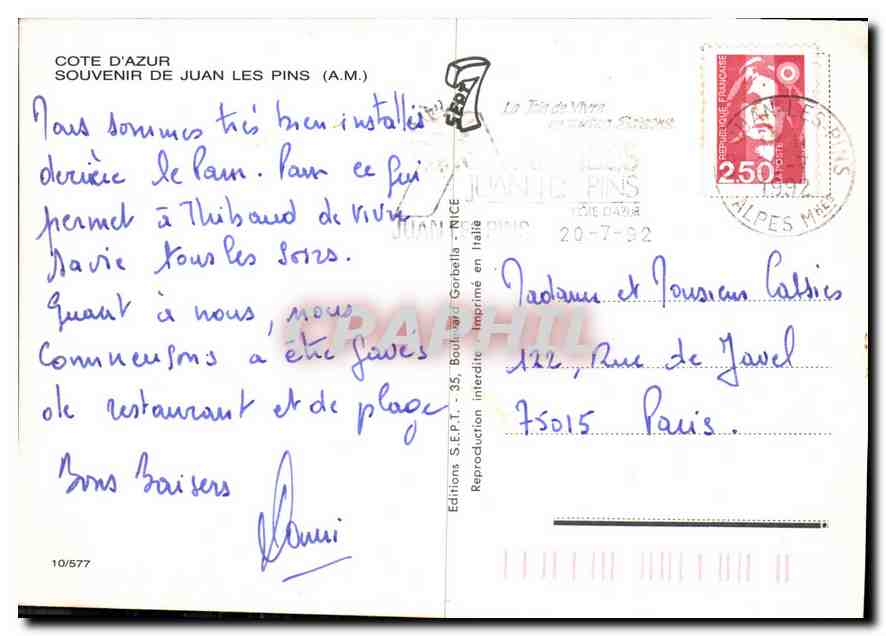 COTE D'AZUR
SOUVENIR DE JUAN LES PINS (A.M.)
Nous sommes très bien installés
derrière le Pam. Pam ce qui
permet à Thibaud de vivre
sa vie tous les soirs.
Quant à nous, nous
commençons a être gavés
de restaurant et de plage
Bons Baisers
10/577
Editions S.E.P.T. - 35, Boulevard Gorbella - NICE
Reproduction interdite - Imprimé en Italie
SEPT
La Joie de Vivre
JUAN LES PINS
COTE D'AZUR
JUAN LES PINS 20-7-92
REPUBLIQUE FRANÇAISE
LA POSTE
2,50
JUAN-LES-PINS
1992
ALPES Mmes
Madame et Monsieur
122, Rue de Javel
75015 Paris.
CPAPHIL